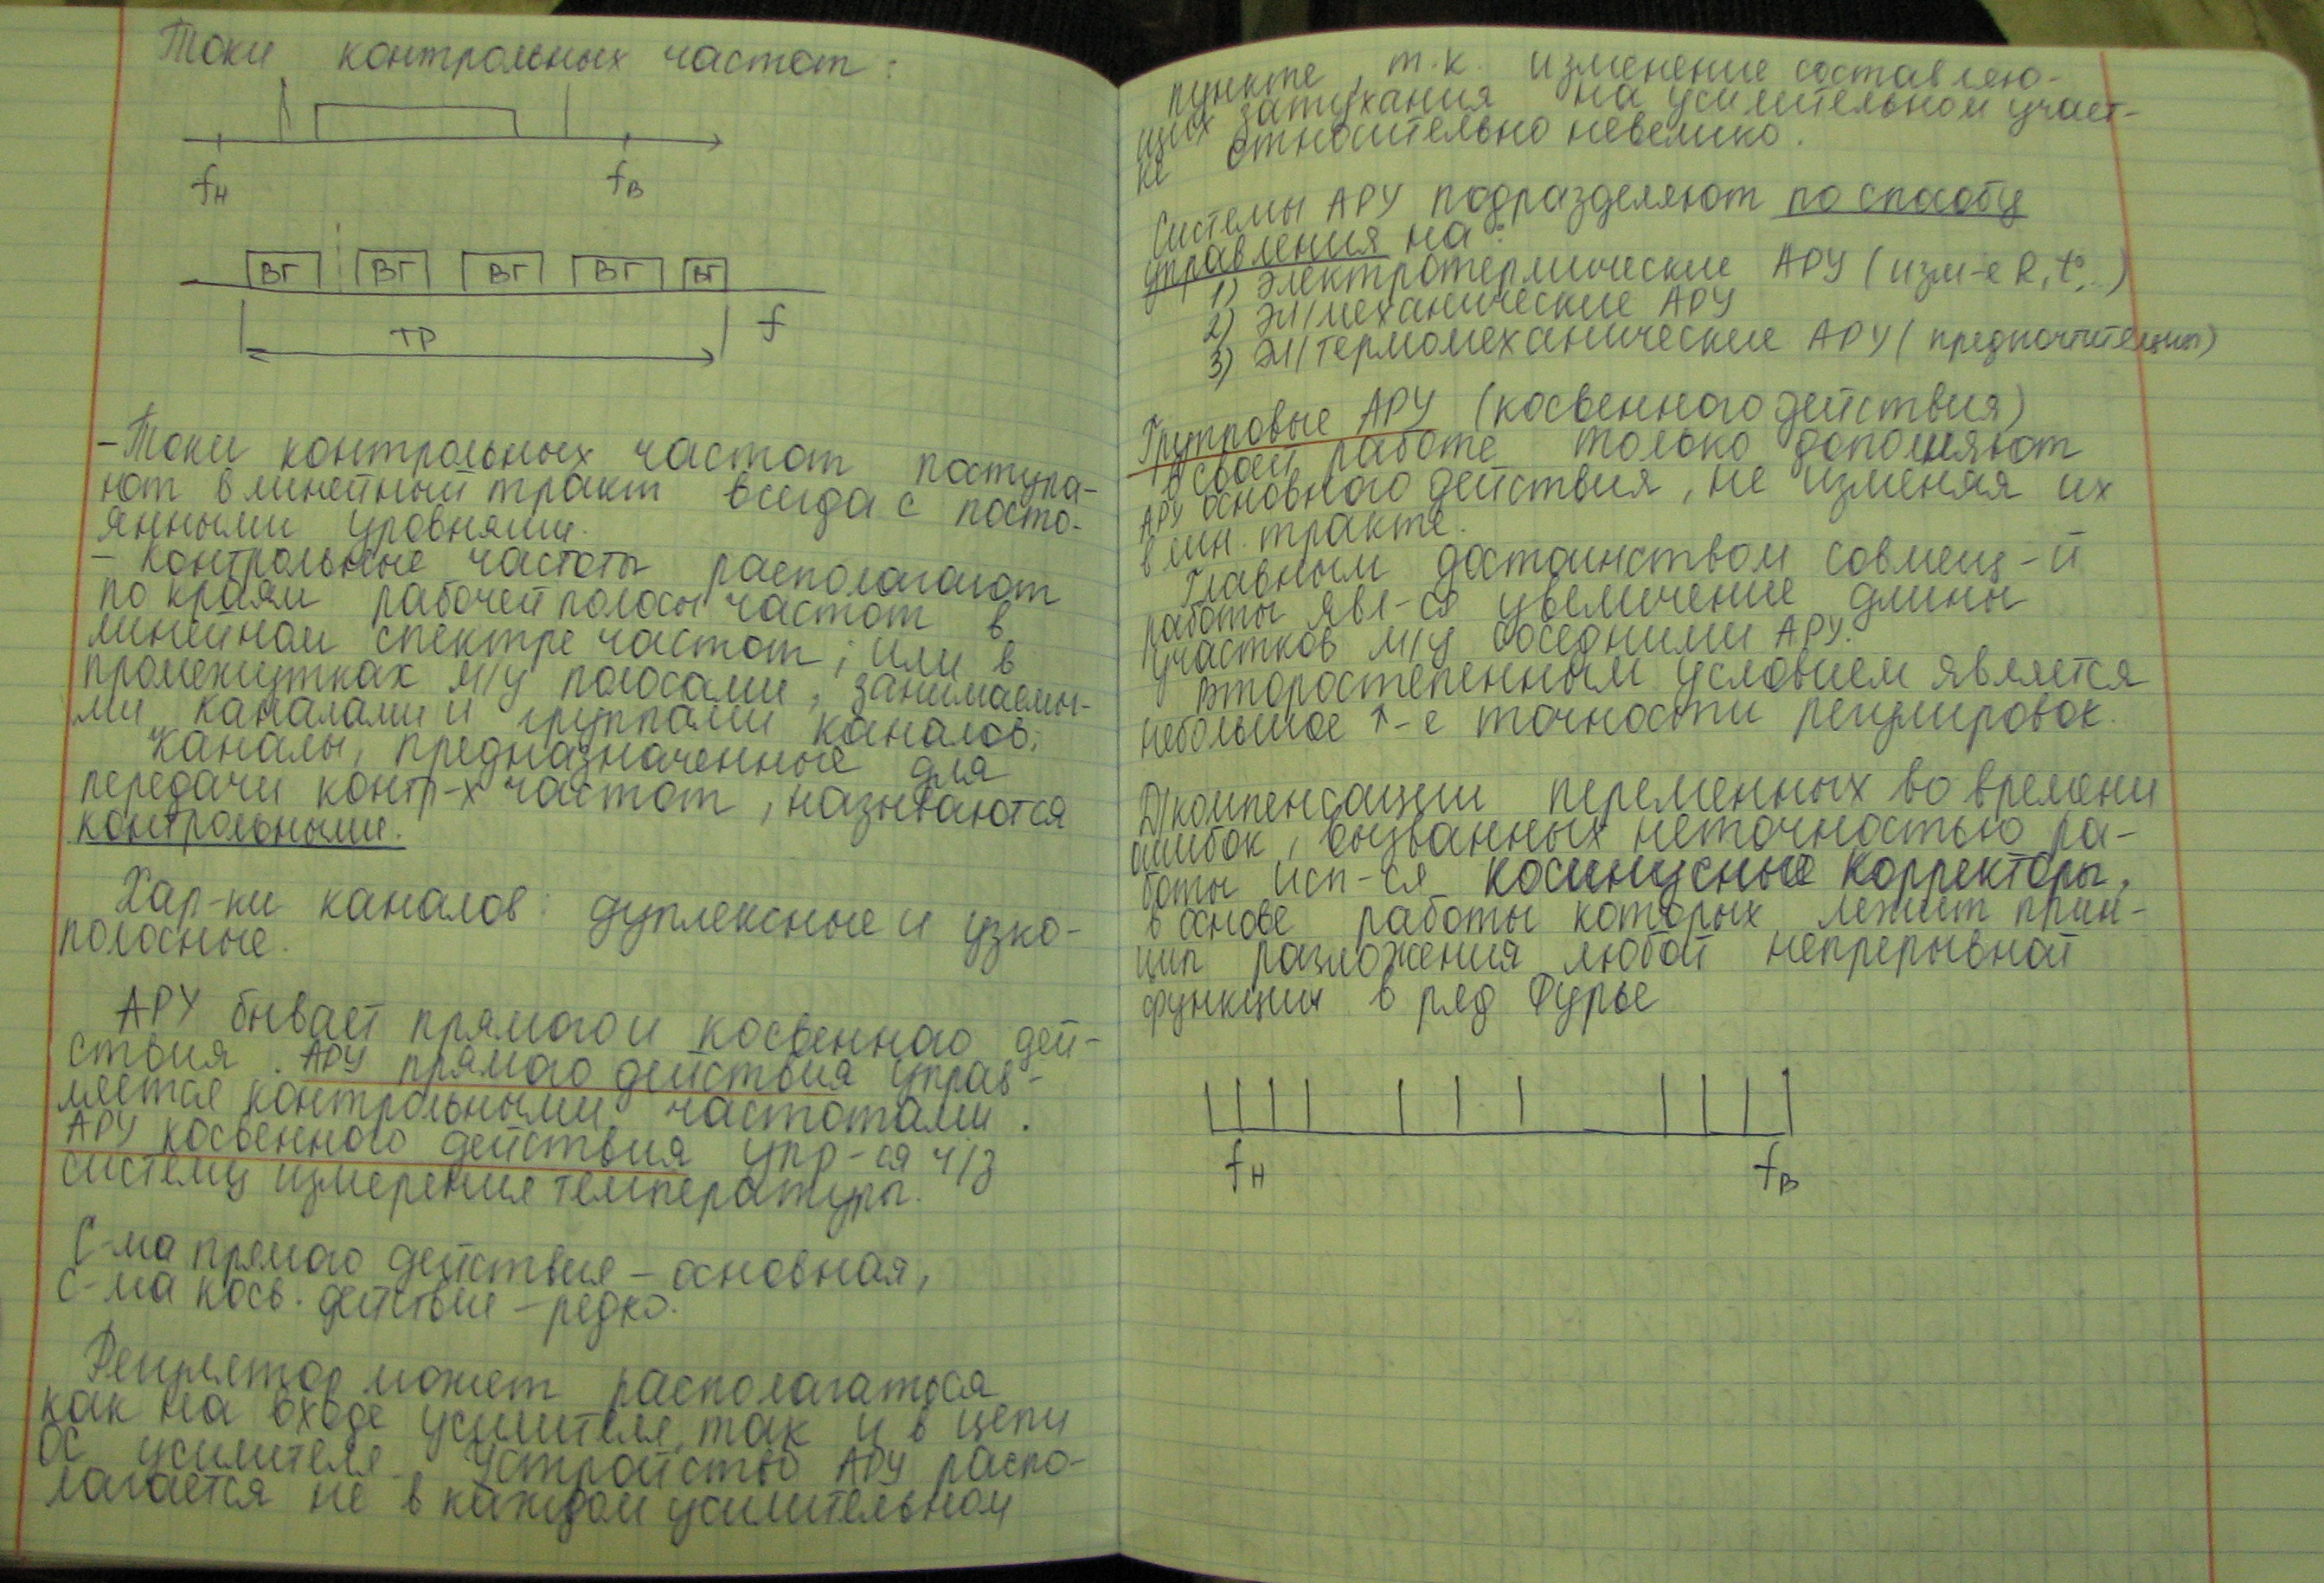 Токи контрольных частот:
fн fв
ВГ ВГ ВГ ВГ ВГ
ТР f
- Токи контрольных частот поступа-
ют в линейный тракт всегда с посто-
янными уровнями.
- Контрольные частоты располагают
по краям рабочей полосы частот в
линейном спектре частот; или в
промежутках м/у полосами, занимаемы-
ми каналами и группами каналов;
Каналы, предназначенные для
передачи контр-х частот, называются
контрольными.
Хар-ки каналов: дуплексные и узко-
полосные.
АРУ бывает прямого и косвенного дей-
ствия. АРУ прямого действия управ-
ляется контрольными частотами.
АРУ косвенного действия упр-ся ч/з
систему измерения температуры.
С-ма прямого действия - основная,
с-ма косв. действие - редко.
Регулятор может располагаться
как на входе усилителя, так и в цепи
ОС усилителя. Устройство АРУ распо-
лагается не в каждом усилительном
пункте, т.к. изменение составляю-
щих затухания на усилительном участ-
ке относительно невелико.
Системы АРУ подразделяют по способу
управления на:
1) Электротермические АРУ (изм-е R, t°,..)
2) Эл/механические АРУ
3) Эл/термомеханические АРУ (
Групповые АРУ (косвенного действия)
в своей работе только дополняют
АРУ основного действия, не изменяя их
в лин. тракте.
Главным достоинством совмещ-й
работы явл-ся увеличение длины
участков м/у соседними АРУ.
Второстепенным условием является
небольшое ↑-е точности регулировок.
Д/компенсации переменных во времени
ошибок, вызванных неточностью ра-
боты исп-ся косинусные корректоры,
в основе работы которых лежит прин-
цип разложения любой непрерывной
функции в ряд Фурье
fн fв